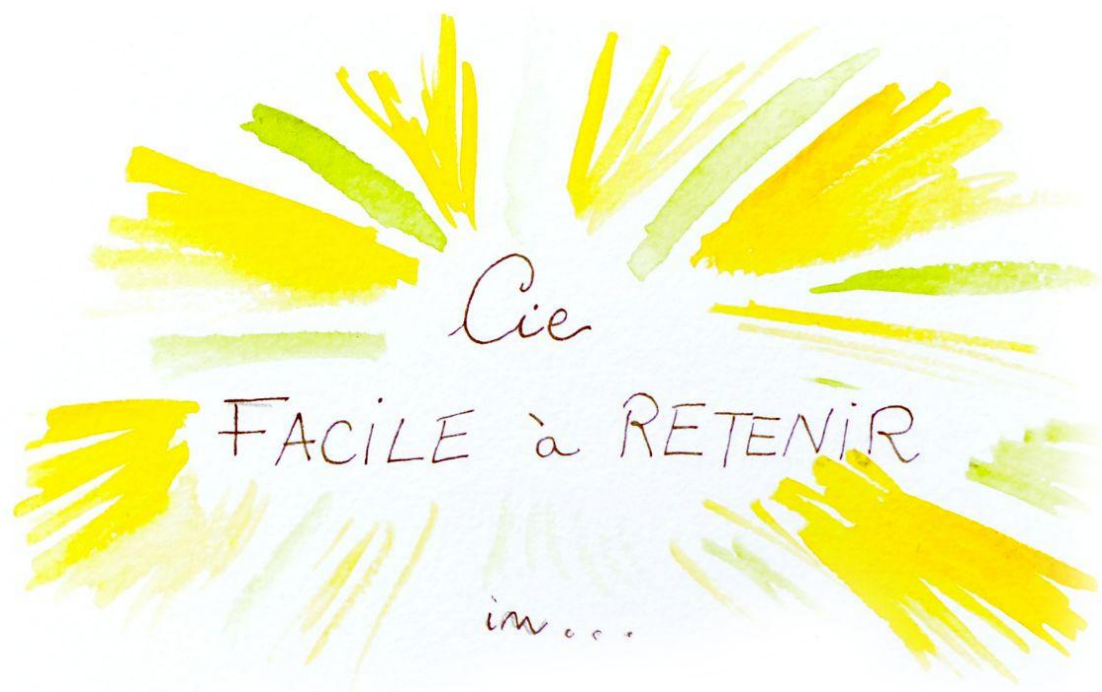 Cie
FACiLE à RETENiR
in...